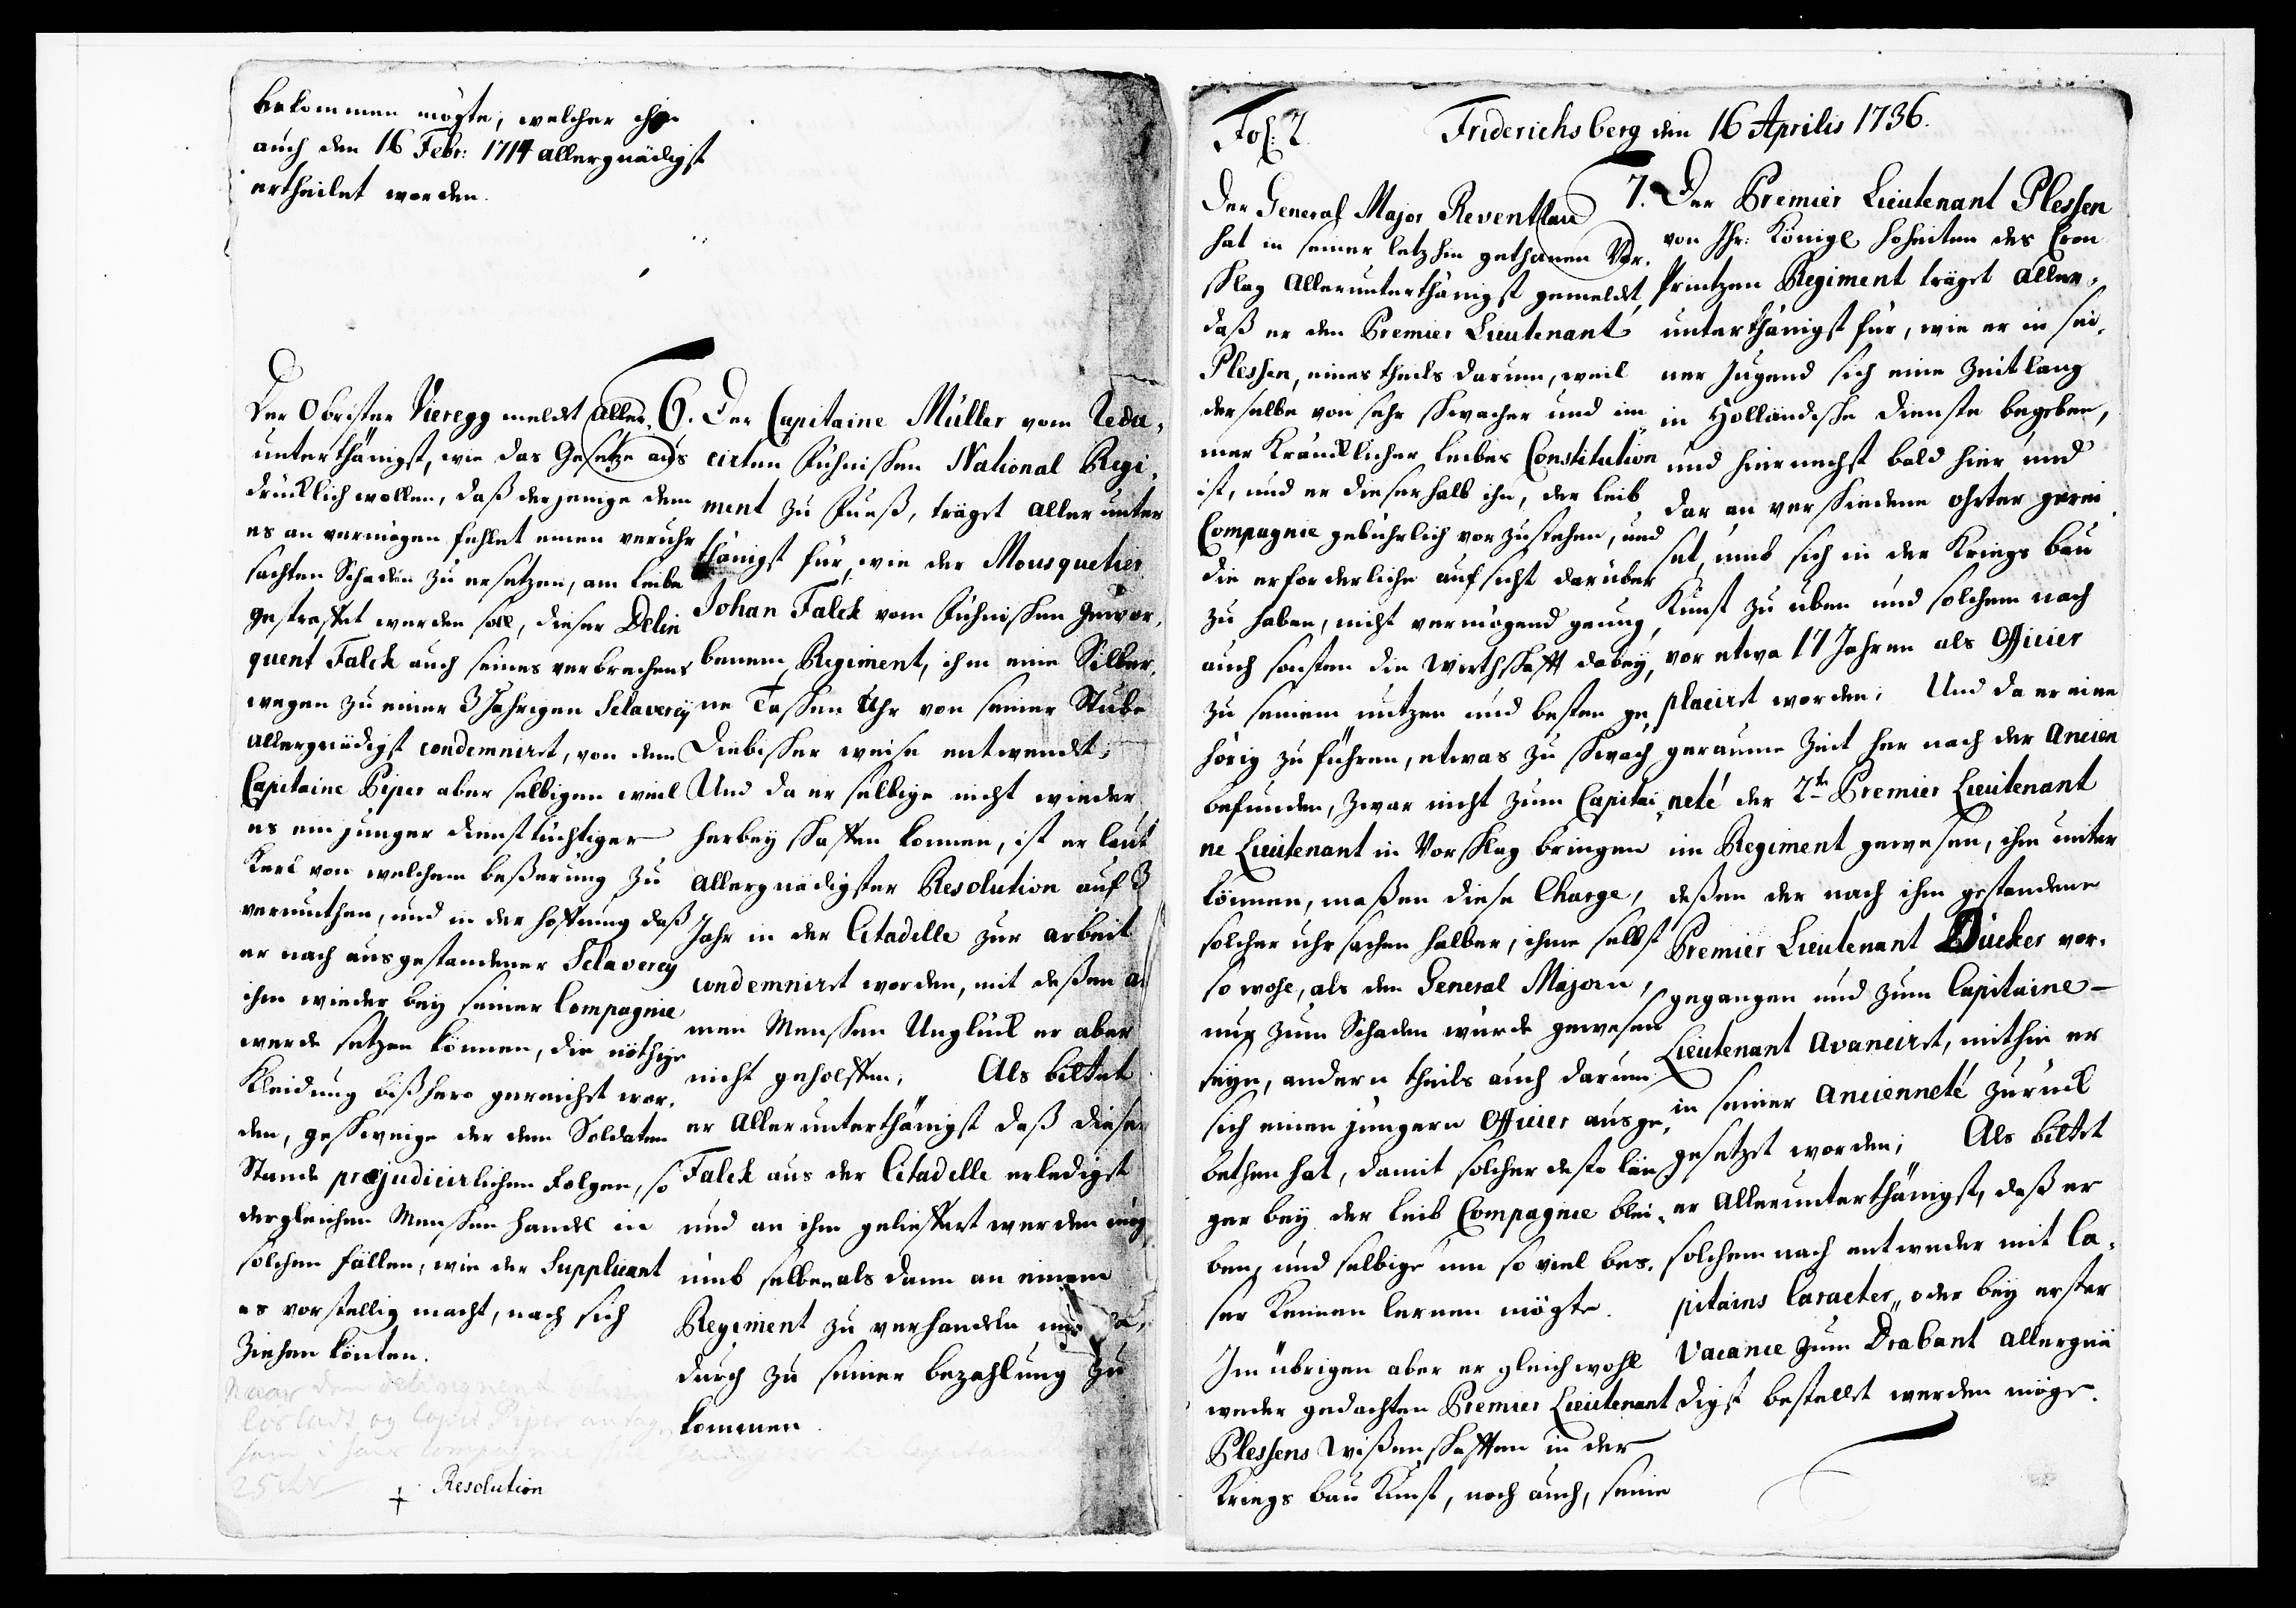 bekommen mögte, welcher ihn
auch den 16 Febr: 1714 allergnädigst
ertheilet worden.
Der Obrister Vieregg meldet aller,
unterthänigst, wie das Gesetze aus
drücklich wollen, daß derjenige dem
es an vermögen fehlet einen veruhr
sachten Schaden zu ersetzen, am Leibe
gestraffet werden soll, dieser Delin
quent Falck auch seines verbrechens
wegen zu einer 3 Jährigen Sclaverey
allergnädigst condemniret, von dem
Capitaine Piper aber selbigen weil
es ein junger dienst tüchtiger
Kerl von welchem beßerung zu
vermuthen, und in der hoffnung daß
er nach ausgestandener Sclaverey
ihm wieder bey seiner Compagnie
werde setzen können, die nöthige
Kleidung bißhero gereichet wor,
den, geschweige der dem Soldaten
Stande præjudicirlichen folgen, so
dergleichen Menschen handel in
solchen fällen, wie der Supplicant
es vorstellig macht, nach sich
ziehen könten.
25 Rdr
+ Resolution
6. Der Capitaine Müller vom redu,
cirten Fühnischen National Regi,
ment zu Fueß, träget aller unter
thänigst für, wie der Mousquetier
Johan Falck vom Fühnischen Gewor,
benem Regiment, ihm eine Silber,
ne Taschen Uhr von seiner Stube
Diebischer weise entwendet;
Und da er selbige nicht wieder
herbey schaffen können, ist er laut
allergnädigster Resolution auf 3
Jahr in der Citadelle zur arbeit
condemniret worden, mit deßen ar
men Menschen Unglück er aber
nicht geholffen, Als bittet
er allerunterthänigst daß dieser
Falck aus der Citadelle erlediget
und an ihm geliefert werden mög
umb selben als dann an einem
Regiment zu verhandeln und da,
durch zu seiner bezahlung zu
kommen.
Fol: 2. Friderichsberg den 16 Aprilis 1736.
Der General Major Reventlau
hat in seiner letzhin gethanen Vor,
schlag allerunterthänigst gemeldet,
daß er den Premier Lieutenant
Plessen, eines theils darum, weil
derselbe von sehr schwacher und im
mer kräncklicher leibes Constitution
ist, und er dieserhalb ihn, der leib
Compagnie gebührlich vorzustehen, und
die erforderliche aufsicht darüber
zu haben, nicht vermögend genug,
auch sonsten die wirthschafft dabey,
zu seinem nutzen und besten ge
hörig zu führen, etwas zu schwach
befunden, zwar nicht zum Capitai,
ne Lieutenant in Vorschlag bringen
können, maßen diese Charge,
solcher uhrsachen halber, ihme selbst
so wohl, als dem General Majorn,
nur zum Schaden würde gewesen
seyn, andern theils auch darum
sich einen jüngern Officier ausge,
bethen hat, damit solcher desto län
ger bey der leib Compagnie blei,
ben, und selbige um so viel bes,
ser kennen lernen mögte.
Im übrigen aber er gleichwohl
weder gedachten Premier Lieutenant
Plessens wißenschafften in der
Kriegs bau Kunst, noch auch, seine
7. Der Premier Lieutenant Plessen
von Ihr: Königl Hoheiten des Cron
Printzen Regiment träget aller,
unterthänigst für, wie er in sei,
ner Jugend sich eine Zeitlang
in Holländische Dienste begeben,
und hiernechst bald hier und
dar an verschiedene ohrter gerei
set, umb sich in der Kriegs bau
Kunst zu üben und solchem nach
vor etwa 17 Jahren als Officier
placirt worden; Und da er eine
geraume Zeit her nach der Ancien
neté der 2te Premier Lieutenant
im Regiment gewesen, ihm unter
deßen der nach ihm gestandene
Premier Lieutenant Dücker vor,
gegangen und zum Capitaine
Lieutenant avanciret, mithin er
in seiner ancienneté zurück
gesetzet worden; Als bittet
er allerunterthänigst, daß er
solchem nach entweder mit Ca,
pitains Caracter, oder bey erster
Vacance zum Drabant allergnä
digst bestellet werden möge.